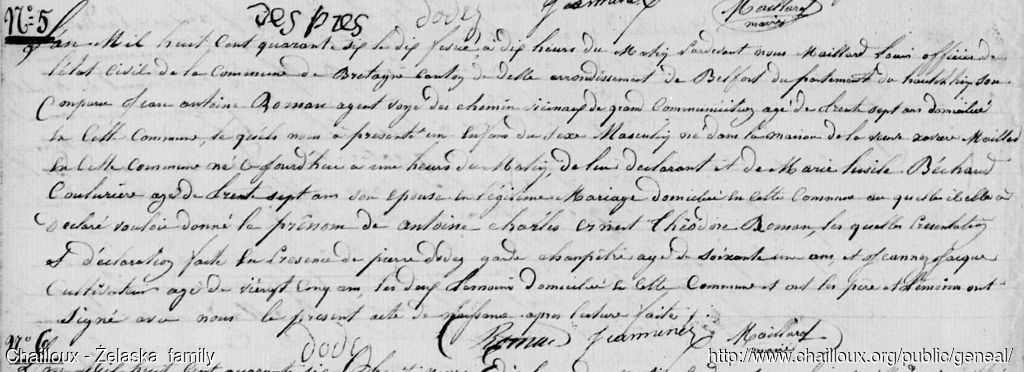 N.o 5
Des près
dodey
Jeanmine
Maillard
maire
L'an Mil huit Cent quarante six le dix fevrié à dix heurs du Matin Pardevant nous Maillard Louis officier de
l'état Civil de la Commune de Bretagne Canton de delle arrondissement de Belfort du partement du haut Rhin, son
Comparu Jean antoine Roman agent voye des chemin vicinaux de grand Communication agé de trente sept ans domicilié
En Cette Commune, le quels nous a présenté un Enfans du Sexe Masculin né dans la maison de la veuve xavier Maillard
En Cette Commune né Ce jourd'hui a une heurs du Matin, de lui declarant et de Marie Béchaud
Couturière agé de trente sept ans son Epouse en légitime Mariage domicilié En Cette Commune au quelle il Elle a
declaré vouloir donné le prénom de antoine charles Ernest théodore Roman, les quelles Presentation
Et déclaration faite En Présence de pierre dodey garde champêtre agé de soixante une ans, et Jeannin Jacque
Cultivateur agé de vingt Cinq ans, les deux témoins domicilié En Cette Commune et ont les pere et témoins ont
Signé avec nous le présent acte de naissance après lecture faite
Roman Jeanmine Maillard
maire
N.o 6
dodey
L'an Mil huit Cent quarante six
Chailloux - Żelaska family
http://www.chailloux.org/public/geneal/